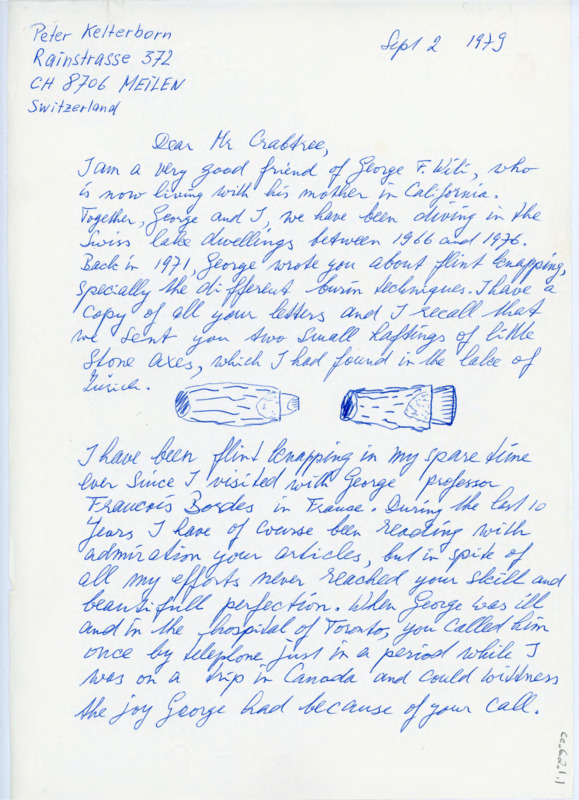 Peter Kelterborn
Rainstrasse 372
CH 8706 MEILEN
Switzerland
Sept 2 1979
Dear Mr Crabtree,
I am a very good friend of George F. Witi, who
is now living with his mother in California.
Together, George and I, we have been diving in the
Swiss lake dwellings between 1966 and 1976.
Back in 1971, George wrote you about flint knapping,
specially the different burin techniques. I have a
copy of all your letters and I recall that
we sent you two small haftings of little
stone axes, which I had found in the lake of
Zürich.
I have been flint knapping in my spare time
ever since I visited with George professor
Francois Bordes in France. During the last 10
years I have of course been reading with
admiration your articles, but in spite of
all my efforts never reached your skill and
beautifull perfection. When George was ill
and in the hospital of Toronto, you called him
once by telephone just in a period while I
was on a trip in Canada and could wittness
the joy George had because of your call.
cc.62.1.1